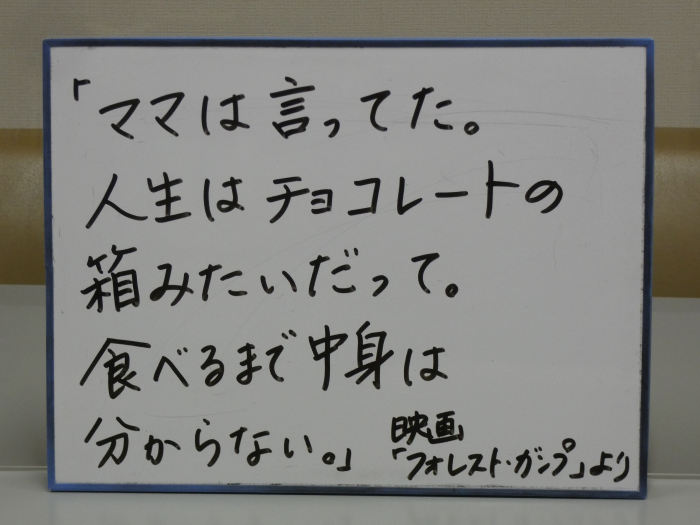 「ママは言ってた。
人生はチョコレートの
箱みたいだって。
食べるまで中身は
分からない。」
映画
「フォレスト・ガンプ」より